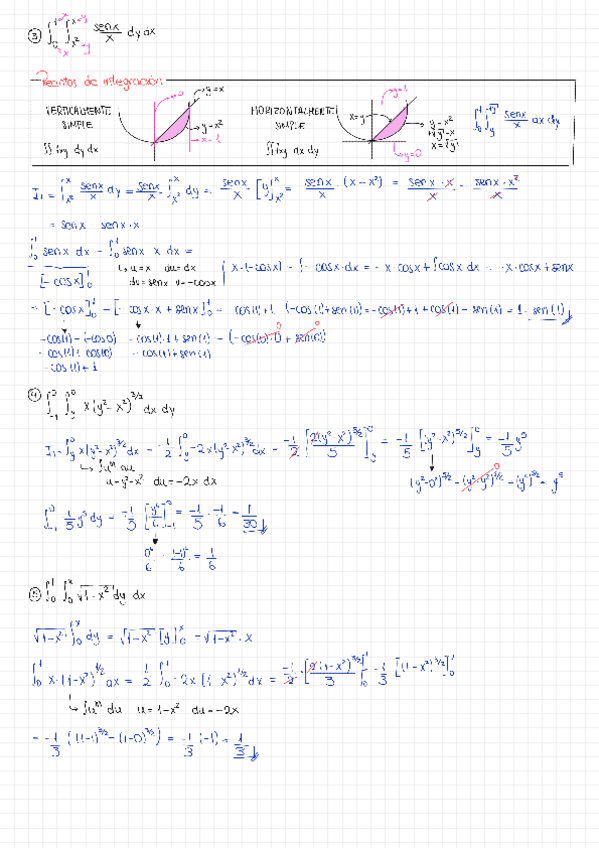 ③ ∫₀¹ ∫ₓ²ˣ senx/x dy dx
Recintos de integración
VERTICALMENTE SIMPLE
∬ f(x,y) dy dx
x=0
y=x
y=x²
x=1
HORIZONTALMENTE SIMPLE
∬ f(x,y) dx dy
y=1
x=y
y=x²
+√y=x
x=√y
y=0
∫₀¹ ∫ᵧ^√y senx/x dx dy
I₁ = ∫ₓ²ˣ senx/x dy = senx/x · ∫ₓ²ˣ dy = senx/x · [y]ₓ²ˣ = senx/x · (x-x²) = senx·x/x - senx·x²/x
= senx - senx·x
∫₀¹ senx dx - ∫₀¹ senx x dx =
[-cosx]₀¹
u=x du=dx
dv=senx v=-cosx
x·(-cosx) - ∫-cosx·dx = -x·cosx + ∫cosx dx = -x·cosx + senx
= [-cosx]₀¹ - [-cosx·x + senx]₀¹ = -cos(1)+1 - (-cos(1)+sen(1)) = -cos(1)+1+cos(1)-sen(1) = 1-sen(1)
-cos(1)-(-cos0)
-cos(1)·1+sen(1) - (-cos(0)·0+sen(0))
-cos(1)+cos(0)
-cos(1)+sen(1)
-cos(1)+1
④ ∫₋₁⁰ ∫ᵧ⁰ x(y²-x²)^3/2 dx dy
I₁ = ∫ᵧ⁰ x(y²-x²)^3/2 dx = -1/2 ∫ᵧ⁰ -2x(y²-x²)^3/2 dx = -1/2 [2(y²-x²)^5/2 / 5]ᵧ⁰ = -1/5 [(y²-x²)^5/2]ᵧ⁰ = -1/5 y⁵
∫uᵐ du
u=y²-x² du=-2x dx
(y²-0²)^5/2 - (y²-y²)^5/2 = (y²)^5/2 = y⁵
∫₋₁⁰ -1/5 y⁵ dy = -1/5 [y⁶/6]₋₁⁰ = -1/5 · -1/6 = 1/30
0⁶/6 - (-1)⁶/6 = 1/6
⑤ ∫₀¹ ∫₀ˣ √1-x² dy dx
√1-x² · ∫₀ˣ dy = √1-x² [y]₀ˣ = √1-x² · x
∫₀¹ x·(1-x²)^1/2 dx = -1/2 ∫₀¹ -2x(1-x²)^1/2 dx = -1/2 · [2(1-x²)^3/2 / 3]₀¹ = -1/3 [(1-x²)^3/2]₀¹
∫uᵐ du u=1-x² du=-2x
= -1/3 ((1-1)^3/2 - (1-0)^3/2) = -1/3 (-1) = 1/3